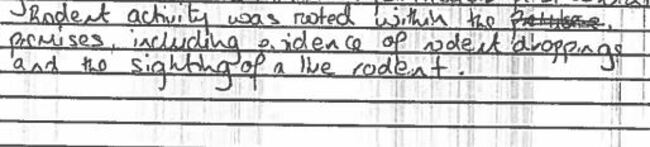 Rodent activity was noted within the
premises, including evidence of rodent droppings
and the sighting of a live rodent.